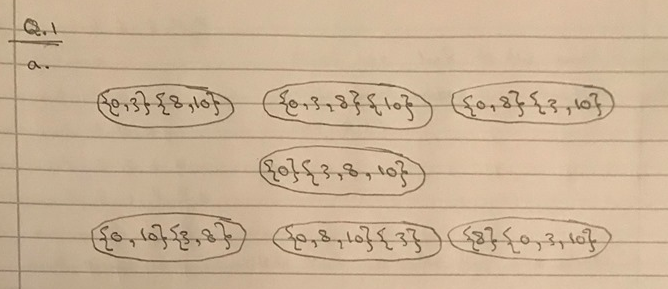 Q.1
a.
{0,3}{8,10} {0,3,8}{10} {0,8}{3,10}
{0}{3,8,10}
{0,10}{3,8} {0,8,10}{3} {8}{0,3,10}